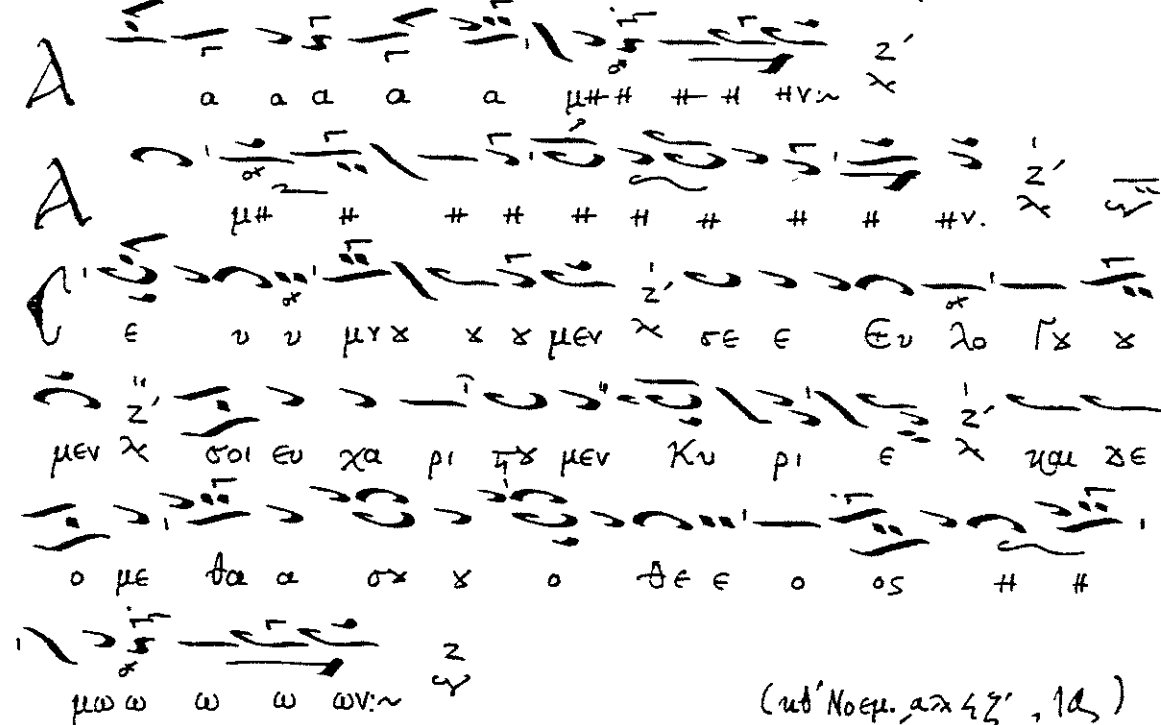 Α α α α α α μη η η η ην:~
Α μη η η η η η η η η ην.
Σ ε υ υ μνȣ ȣ ȣ μεν σε ε Ευ λο Γȣ ȣ
μεν σοι ευ χα ρι ϛȣ μεν Κυ ρι ε και δε
ο με θα α σȣ ȣ ο θε ε ο ος η η
μω ω ω ω ων:~
(κδ' Νοεμ.